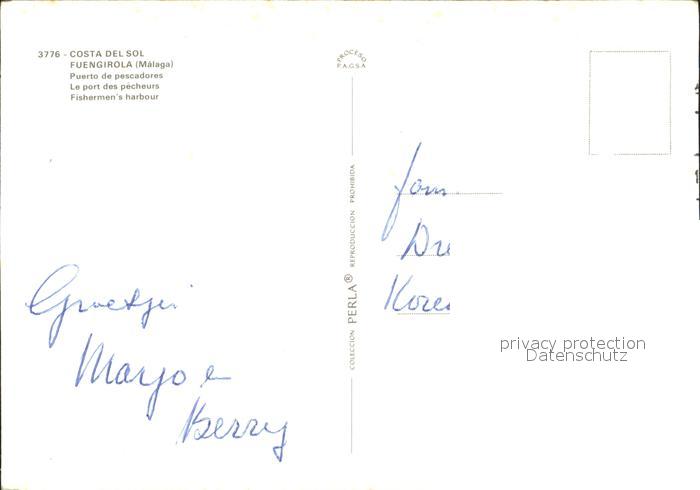 3776 - COSTA DEL SOL
FUENGIROLA (Málaga)
Puerto de pescadores
Le port des pêcheurs
Fishermen's harbour
PROCESO
P.A.G.S.A
COLECCION PERLA® REPRODUCCION PROHIBIDA
Fam
Dre
Kore
Groetjes
Marjo en
Berry
privacy protection
Datenschutz